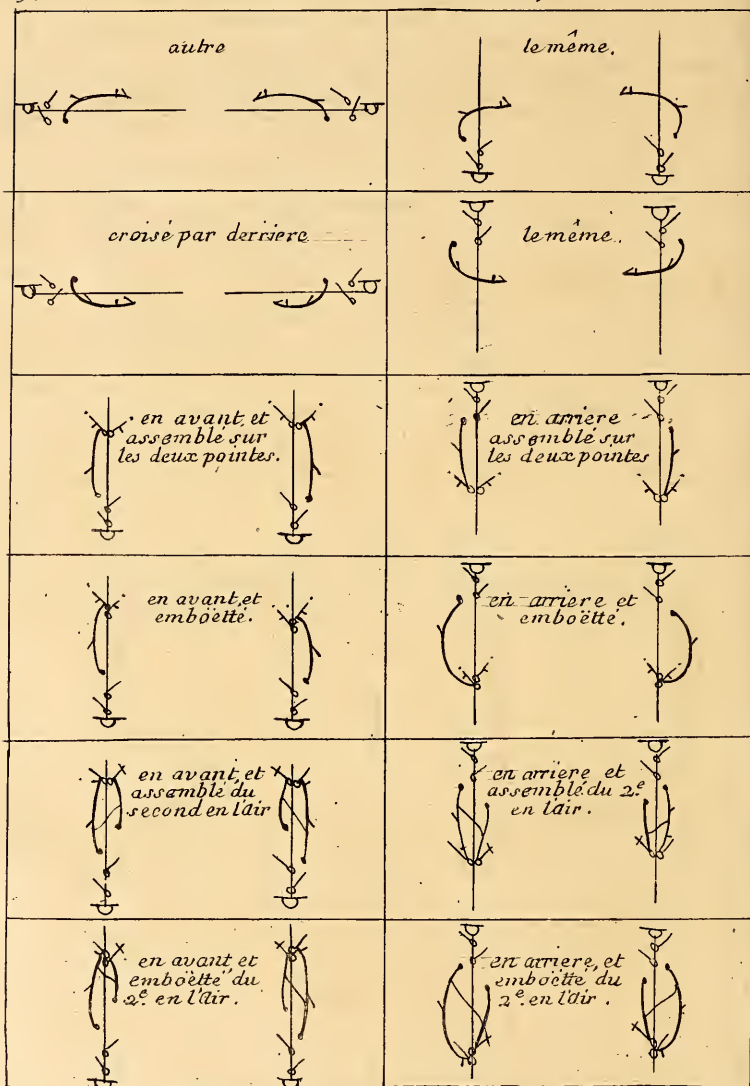 autre
le même.
croisé par derriere
le même.
en avant, et
assemblé sur
les deux pointes.
en arriere
assemblé sur
les deux pointes
en avant, et
emboëtté.
en arriere et
emboëtté.
en avant, et
assemblé du
second en l'air
en arriere et
assemblé du 2.e
en l'air.
en avant, et
emboëtté du
2.e en l'air.
en arriere, et
emboëtté du
2.e en l'air.